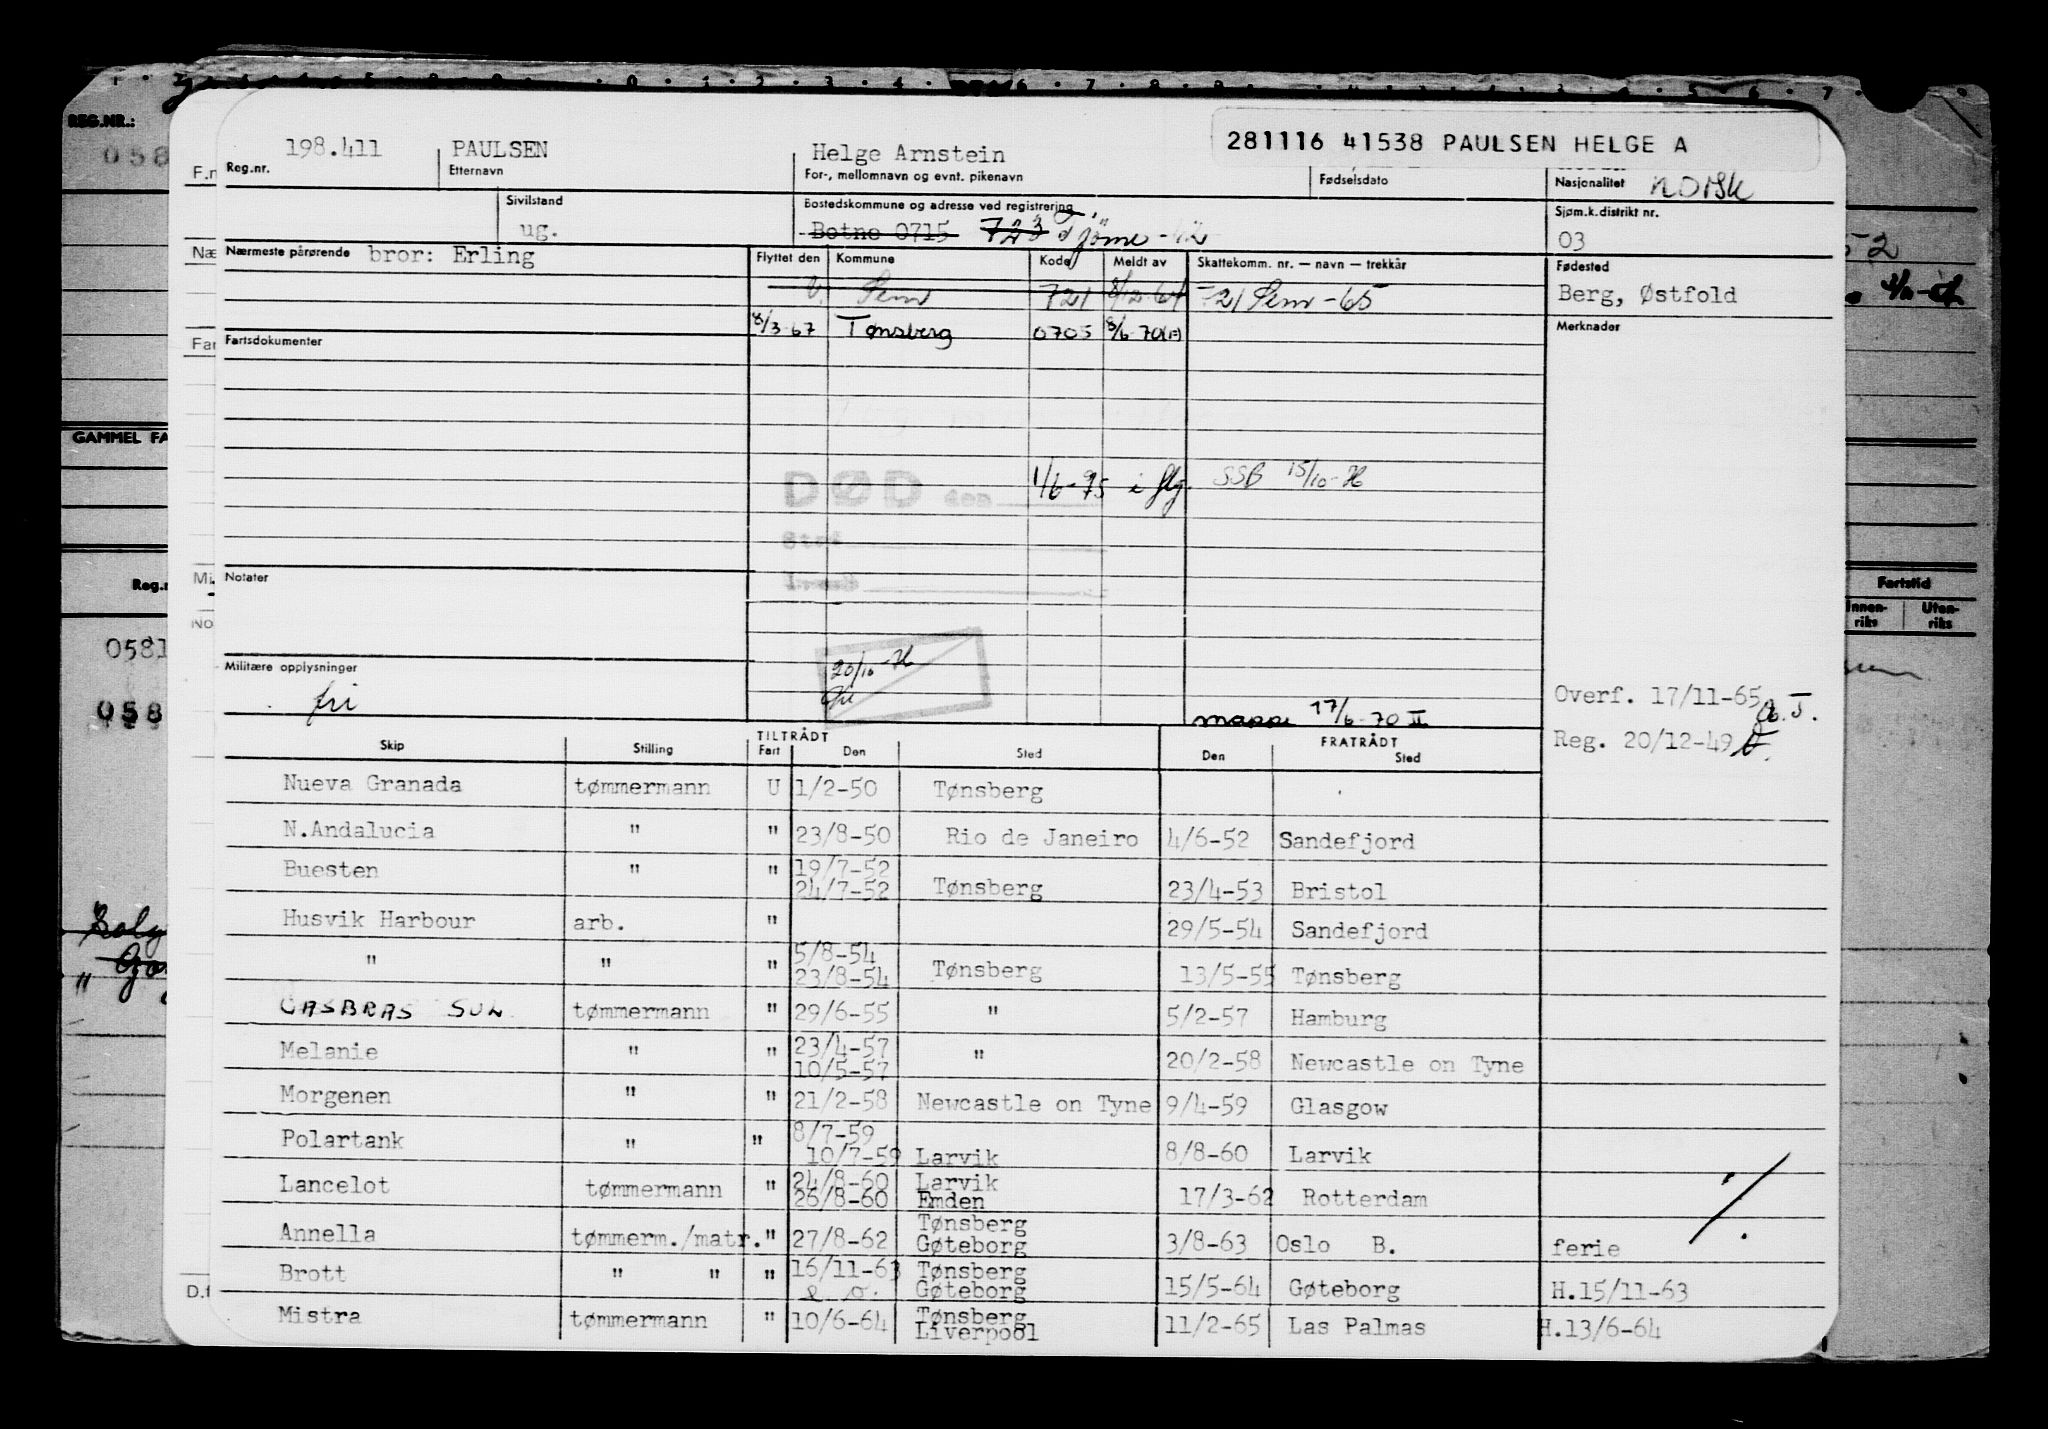 REG.NR.:
058
198.411 PAULSEN Helge Arnstein 281116 41538 PAULSEN HELGE A
Reg.nr. Etternavn For-, mellomnavn og evnt. pikenavn Fødselsdato Nasjonalitet NORSK
Sivilstand Bostedskommune og adresse ved registrering Sjøm.k.distrikt nr.
ug. Botne 0715 723 Tjöme 03
Nærmeste pårørende bror: Erling Flyttet den Kommune Kode Meldt av Skattekomm. nr. — navn — trekkår Fødested
Sem 721 8/12-64 721 Sem -65 Berg, Østfold
8/3-67 Tønsberg 0705 8/6-70 Merknader
Fartsdokumenter
GAMMEL FA
DØD den 1/6-75 i flg. SSB 15/10-76
Sted
Reg.n Fartstid
Innen-riks Uten-riks
Notater
0581
058
Militære opplysninger
fri
20/10-76
mappe 17/6-70 II
Overf. 17/11-65
Reg. 20/12-49
TILTRÅDT FRATRÅDT
Skip Stilling Fart Den Sted Den Sted
Nueva Granada tømmermann U 1/2-50 Tønsberg
N.Andalucia " " 23/8-50 Rio de Janeiro 4/6-52 Sandefjord
Buesten " " 19/7-52
24/7-52 Tønsberg 23/4-53 Bristol
Husvik Harbour arb. " 29/5-54 Sandefjord
" " " 5/8-54
23/8-54 Tønsberg 13/5-55 Tønsberg
GASBRAS SUL tømmermann " 29/6-55 " 5/2-57 Hamburg
Melanie " " 23/4-57
10/5-57 " 20/2-58 Newcastle on Tyne
Morgenen " " 21/2-58 Newcastle on Tyne 9/4-59 Glasgow
Polartank " " 8/7-59
10/7-59 Larvik 8/8-60 Larvik
Lancelot tømmermann " 24/8-60 Larvik
26/8-60 Emden 17/3-62 Rotterdam
Annella tømmerm./matr. " 27/8-62 Tønsberg
Gøteborg 3/8-63 Oslo B. ferie
Brott " " " 16/11-63 Tønsberg
Gøteborg 15/5-64 Gøteborg H.15/11-63
Mistra tømmermann " 10/6-64 Tønsberg
Liverpool 11/2-65 Las Palmas H.13/6-64